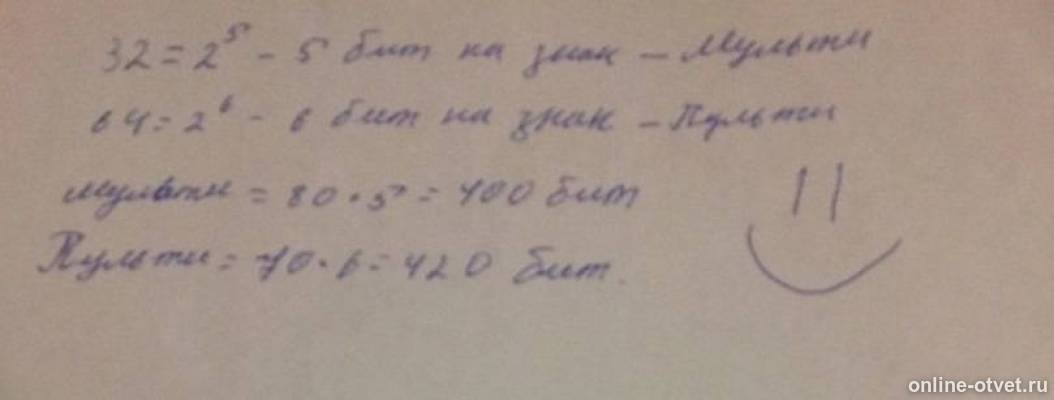 32 = 2⁵ - 5 бит на знак - Мульти
64 = 2⁶ - 6 бит на знак - Пульти
Мульти = 80 · 5 = 400 бит
Пульти = 70 · 6 = 420 бит.
online-otvet.ru